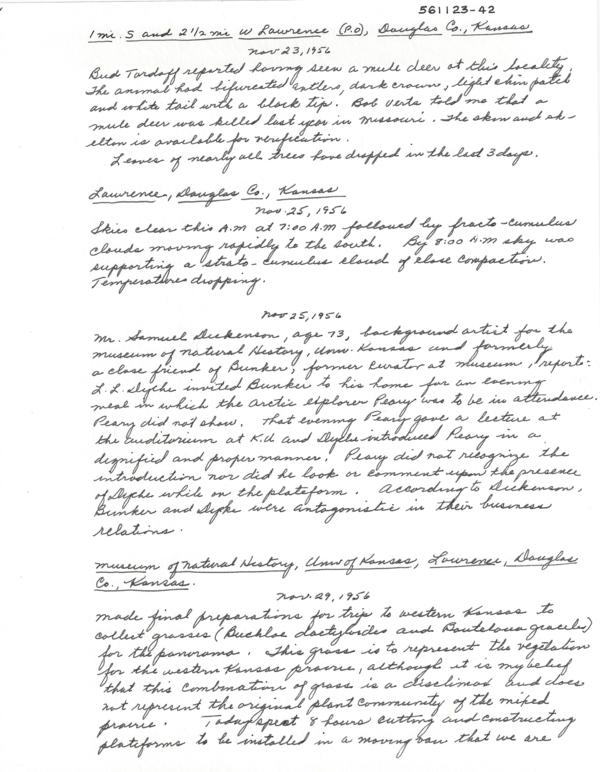 561123-42
1 mi. S and 2 1/2 mi W Lawrence (P.O), Douglas Co., Kansas
Nov 23, 1956
Bud Tordoff reported having seen a mule deer at this locality.
The animal had bifurcated antlers, dark crown, light chin patch
and white tail with a black tip. Bob Verts told me that a
mule deer was killed last year in Missouri. The skin and sk-
elton is available for verification.
Leaves of nearly all trees, have dropped in the last 3 days.
Lawrence, Douglas Co., Kansas
Nov. 25, 1956
Skies clear this A.M at 7:00 A.M followed by fracto-cumulus
clouds moving rapidly to the south. By 8:00 A.M sky was
supporting a strato-cumulus cloud of close compaction.
Temperatures dropping.
Nov 25, 1956
Mr. Samuel Dickenson, age 73, background artist for the
Museum of Natural History, Univ. Kansas and formerly
a close friend of Bunker, former curator at museum, reports:
L. L. Dyche invited Bunker to his home for an evening
meal in which the arctic explorer Peary was to be in attendance.
Peary did not show. That evening Peary gave a lecture at
the auditorium at K.U and Dyche introduced Peary in a
dignified and proper manner. Peary did not recognize the
introduction nor did he look or comment upon the presence
of Dyche while on the plateform. According to Dickenson,
Bunker and Dyche were antagonistic in their business
relations.
Museum of Natural History, Univ of Kansas, Lawrence, Douglas
Co., Kansas.
Nov. 29, 1956
Made final preparations for trip to western Kansas to
collect grasses (Buchloe dactyloides and Bouteloua gracilis)
for the panorama. This grass is to represent the vegetation
for the western Kansas prairie, although it is my belief
that this combination of grass is a disclimax and does
not represent the original plant community of the mixed
prairie. Today spent 8 hours cutting and constructing
plateforms to be installed in a moving van that we are